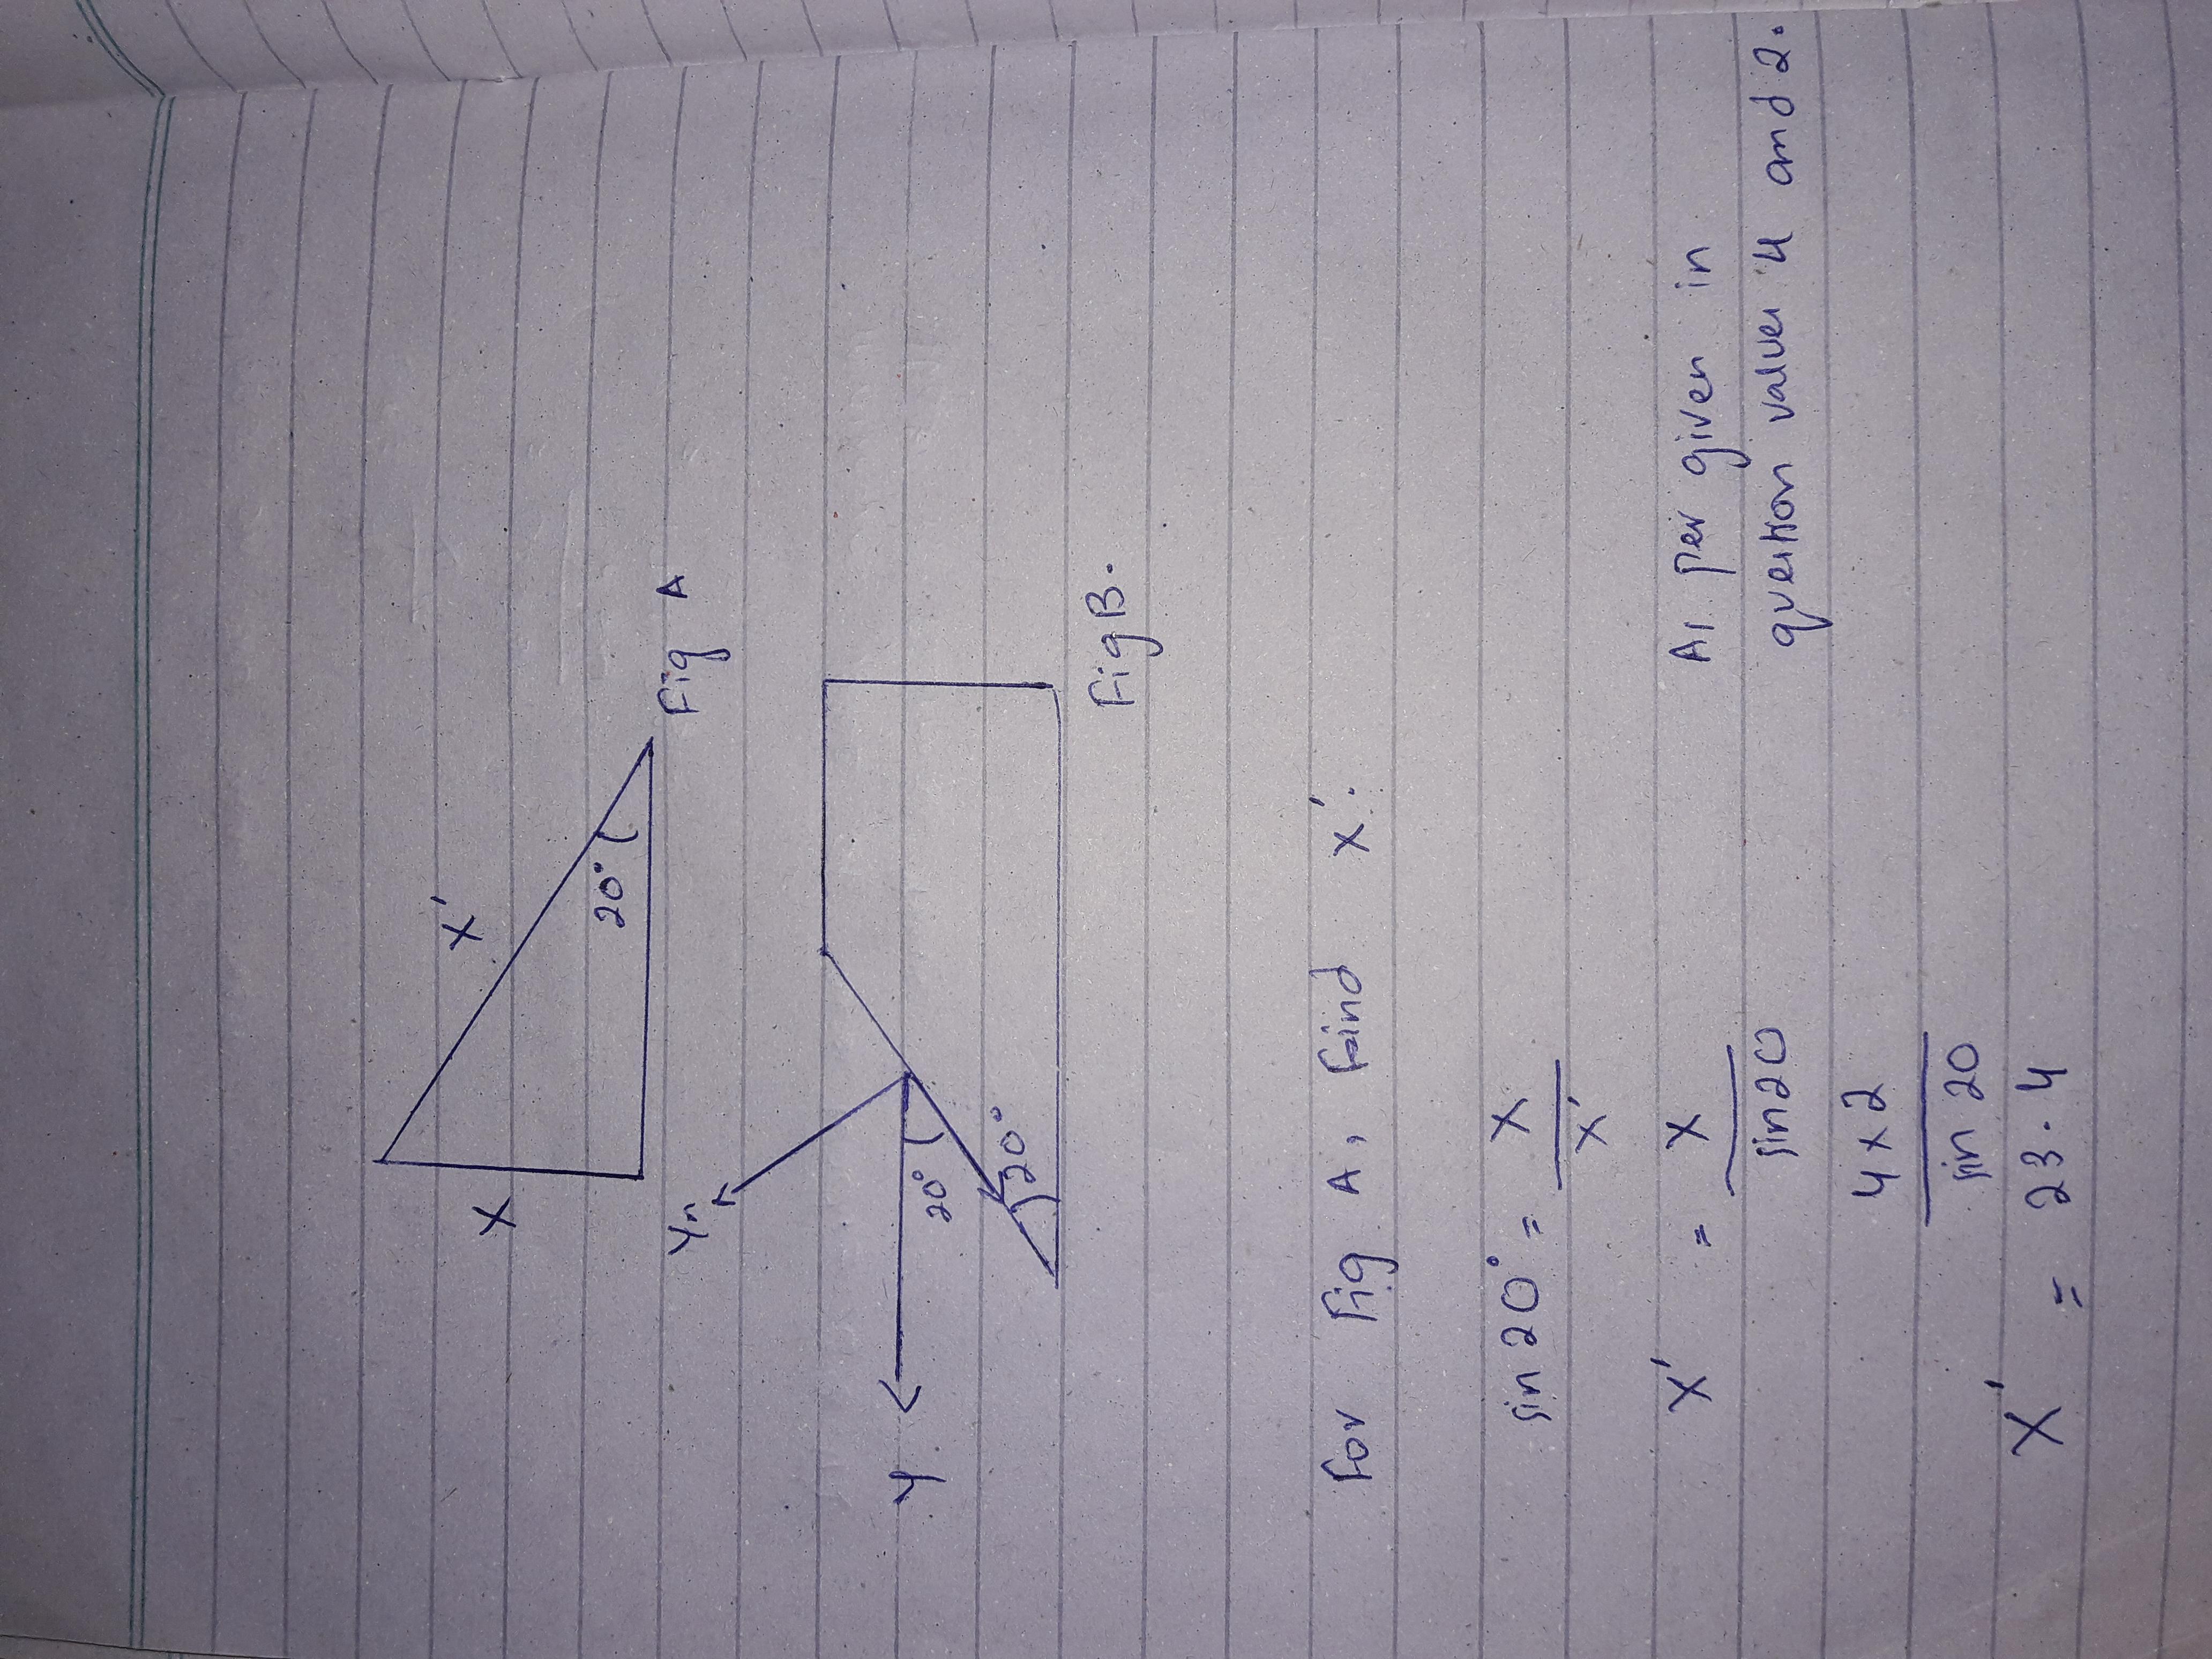 X
X'
20°
Fig A
Yn
Y
20°
20°
Fig B.
For Fig A, Find X'.
sin 20° = X / X'
X' = X / sin 20
As per given in
question values 4 and 2.
4 x 2 / sin 20
X' = 23.4